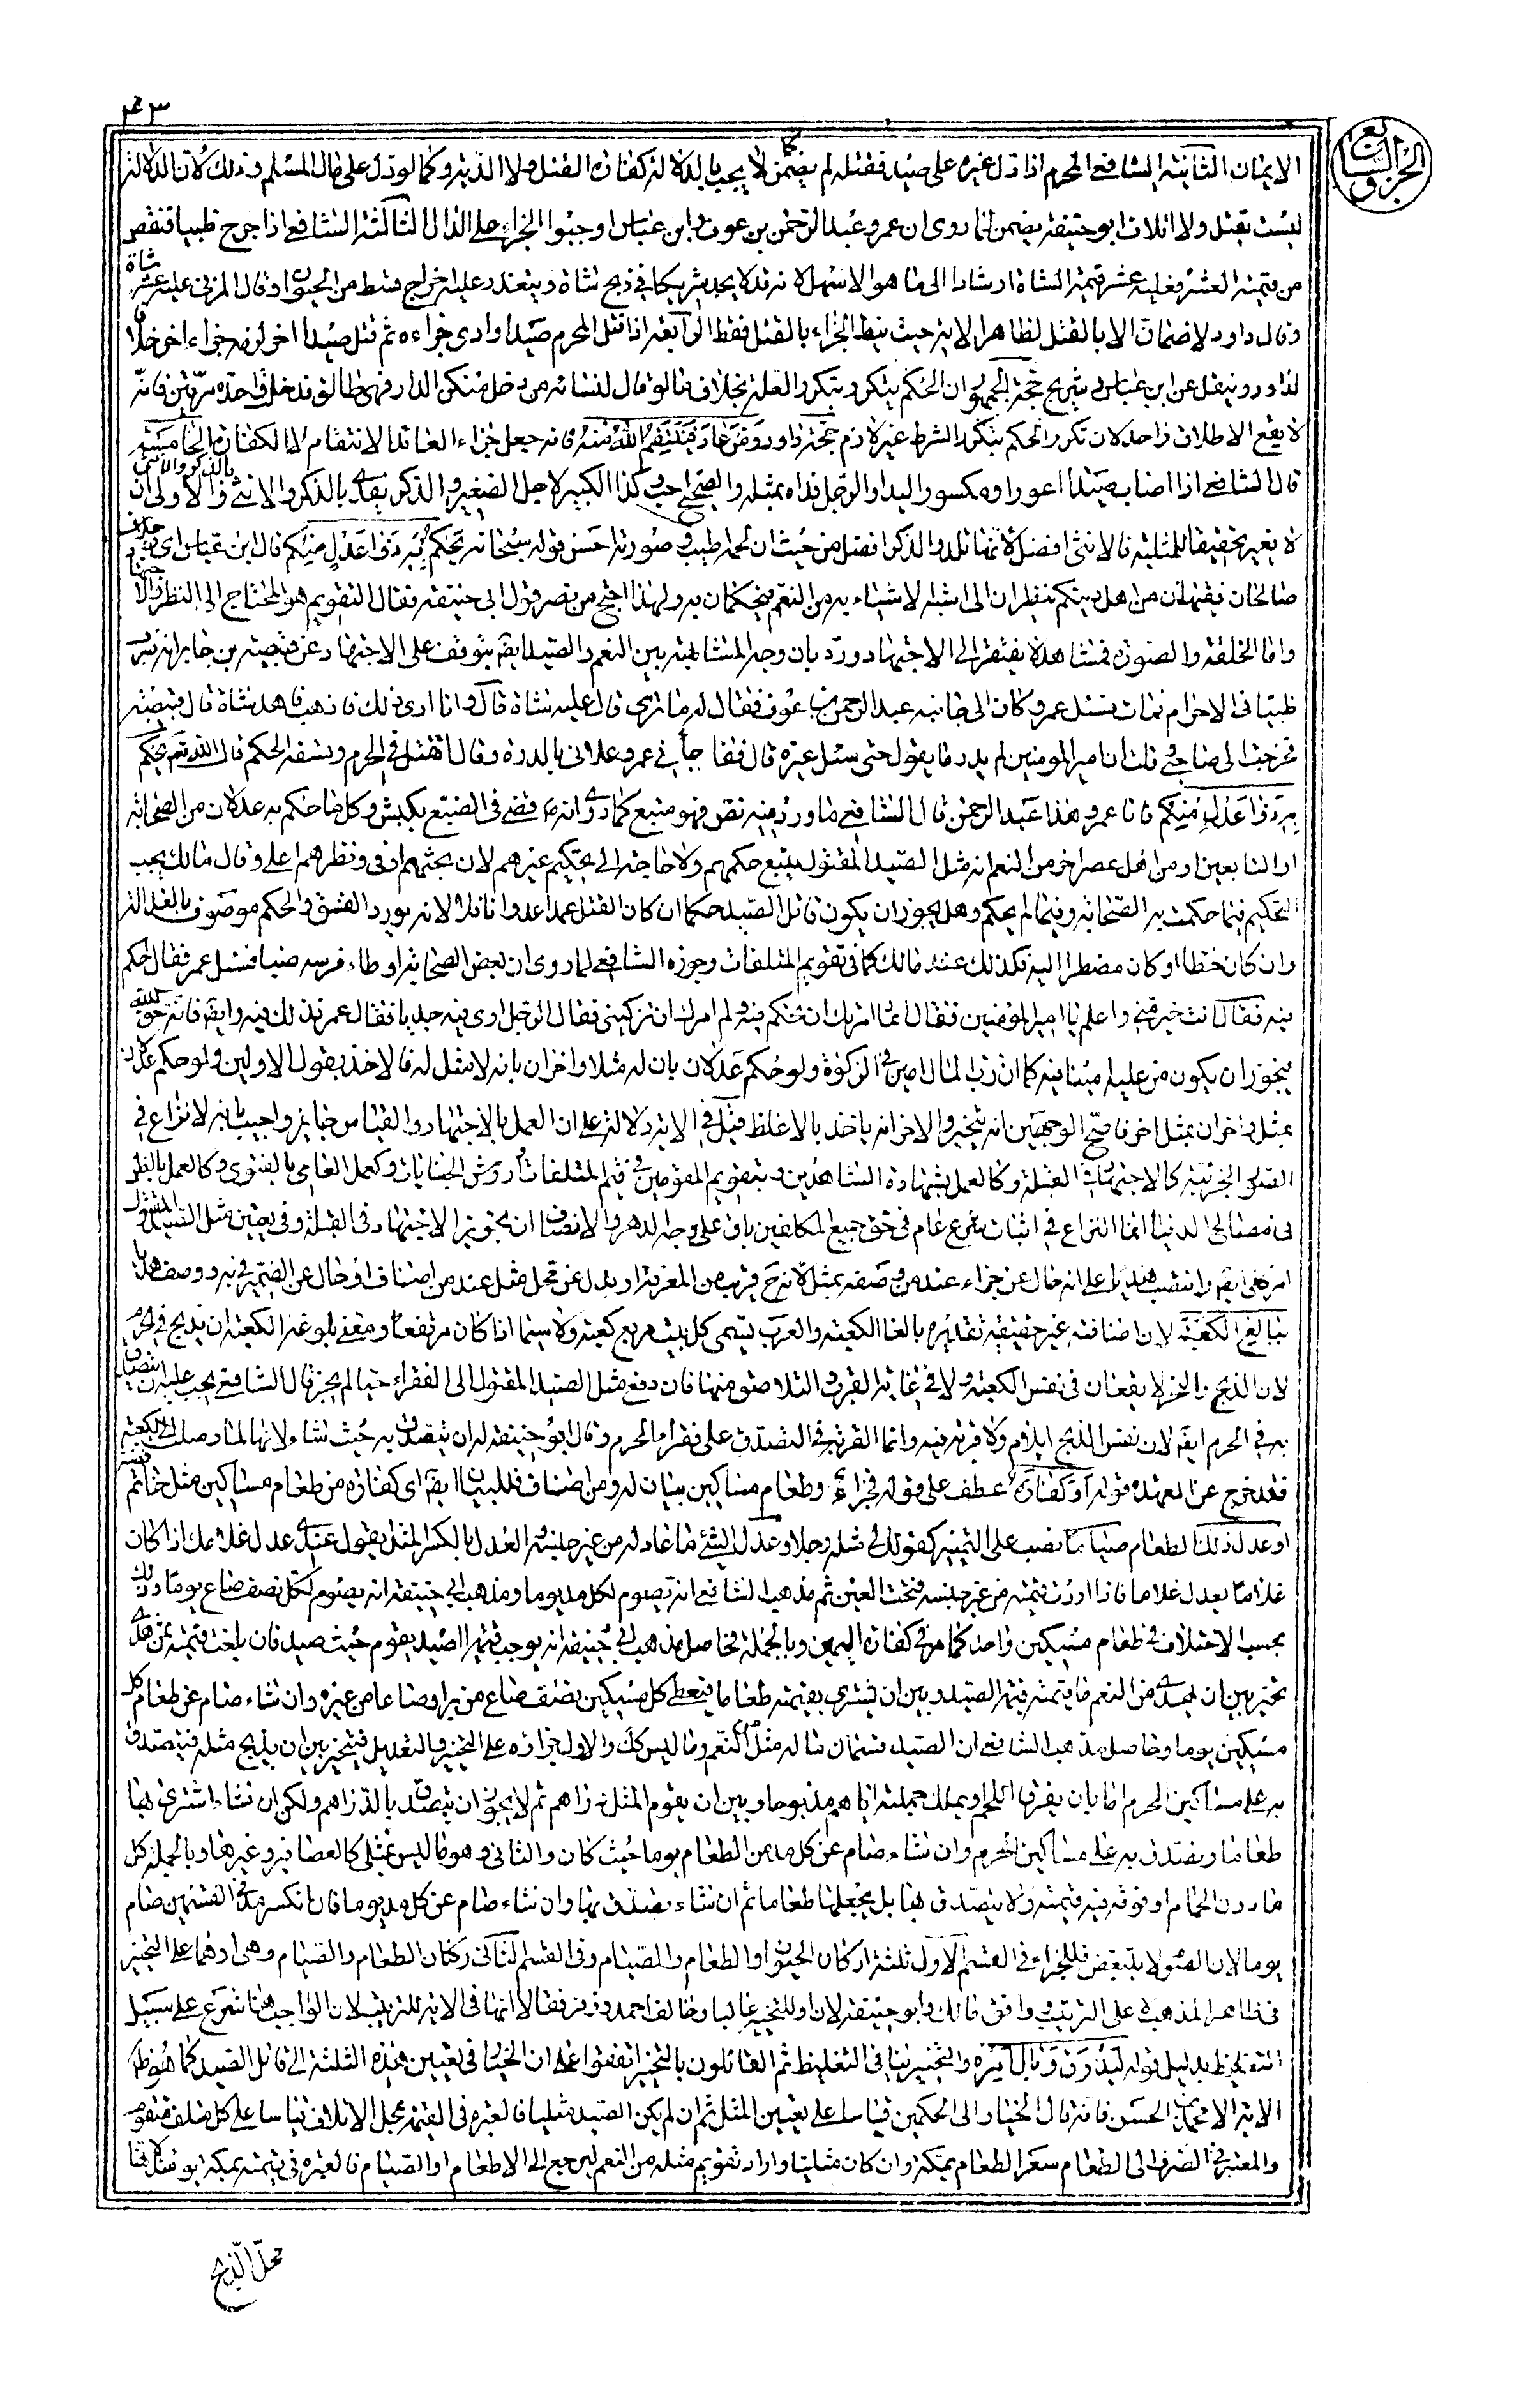 ٤٣
الجزو السابع
الايمان الثانية الشافعي المحرم اذا دل غيره على صيد فقتله لم يضمن كما لا يجب بالدلالة كفارة القتل ولا الدية وكما لو دل على مال المسلم وذلك لان الدلالة
ليست بقتل ولا اتلاف ابو حنيفة يضمن لما روى ان عمر وعبد الرحمن بن عوف وابن عباس اوجبوا الجزاء على الدال الثالثة الشافعي اذا جرح ظبيا فنقص
من قيمته العشر فعليه عشر قيمة الشاة ارشادا الى ما هو الاسهل لانه قد لا يجد شريكا في ذبح شاة ويتعذر عليه اخراج قسط من الحيوان وقال المزني عليه عشر شاة
وقال داود لا ضمان الا بالقتل لظاهر الاية حيث نيط الجزاء بالقتل فقط الرابعة اذا قتل المحرم صيدا وادى جزاءه ثم قتل صيدا اخر لزمه جزاء اخر خلافا
لداود وينقل عن ابن عباس وشريح حجة الجمهور ان الحكم يتكرر بتكرر العلة بخلاف ما لو قال لنسائه من دخل منكن الدار فهي طالق فدخلت واحدة مرتين فانه
لا يقع الا طلاق واحد لان تكرر الحكم بتكرر الشرط غير لازم حجة داود ومن عاد فينتقم الله منه فانه جعل جزاء العائد الانتقام لا الكفارة الخامسة
قال الشافعي اذا اصاب صيدا اعور او مكسور اليد او الرجل فداه بمثله والصحيح احب وكذا الكبير لاجل الصغير والذكر يفدى بالذكر والانثى بالانثى والاولى ان
لا يغير تحقيقا للمثلية فالانثى افضل لانها تلد والذكر افضل من حيث ان لحمه اطيب وصورته احسن قوله سبحانه يحكم به ذوا عدل منكم قال ابن عباس اي رجلان
صالحان فقيهان من اهل دينكم ينظران الى اشبه الاشياء به من النعم فيحكمان به ولهذا احتج من نصر قول ابي حنيفة فقال التقويم هو المحتاج الى النظر والاجتهاد
واما الخلقة والصورة فمشاهدة لا يفتقر الى الاجتهاد ورد بان وجه المشابهة بين النعم والصيد ايضا يتوقف على الاجتهاد عن قبيصة بن جابر انه ضرب
ظبيا في الاحرام فمات فسئل عمر وكان الى جانبه عبد الرحمن بن عوف فقال له ما ترى قال عليه شاة قال وانا ارى ذلك فاذهب فاهد شاة قال قبيصة
فخرجت الى صاحبي قلت ان امير المومنين لم يدر ما يقول حتى سئل غيره قال ففاجأني عمر وعلاني بالدرة وقال اتقتل في الحرم وتسفه الحكم قال الله تعالى يحكم
به ذوا عدل منكم فانا عمر وهذا عبد الرحمن قال الشافعي ما ورد فيه نص فهو متبع كما روى انه قضى في الضبع بكبش وكل ما حكم به عدلان من الصحابة
او التابعين او من اهل عصر اخر من النعم انه مثل الصيد المقتول يتبع حكمهم ولا حاجة الى تحكيم غيرهم لان بحثهم اوفى ونظرهم اعلى وقال مالك يجب
التحكيم فيما حكمت به الصحابة وفيما لم يحكم وهل يجوز ان يكون قاتل الصيد حكما ان كان القتل عمدا عدوانا فلا لانه يورد الفسق والحكم موصوف بالعدالة
وان كان خطا او كان مضطرا اليه فكذلك عند مالك كما في تقويم المتلفات وجوزه الشافعي لما روى ان بعض الصحابة اوطاء فرسه ضبا فسئل عمر فقال احكم
فيه فقال انت خير مني واعلم يا امير المؤمنين فقال انما امرتك ان تحكم فيه ولم امرك ان تزكيني فقال الرجل ارى فيه جديا فقال عمر فذلك فيه وايضا فانه حق الله
فيجوز ان يكون من عليه امينا فيه كما ان رب المال امين في الزكوة ولو حكم عدلان بان له مثلا واخران بانه لا مثل له فالاخذ بقول الاولين ولو حكم عدلان
بمثل واخران بمثل اخر فاصح الوجهين انه يتخير والاخر انه ياخذ بالاغلظ قيل في الاية دلالة على ان العمل بالاجتهاد والقياس جايز واجيب بانه لا نزاع في
الصور الجزئية كالاجتهاد في القبلة وكالعمل بشهادة الشاهدين وبتقويم المقومين في قيم المتلفات واروش الجنايات وكعمل العامي بالفتوى وكالعمل بالظن
في مصالح الدنيا انما النزاع في اثبات شرع عام في حق جميع المكلفين باق على وجه الدهر والانصاف ان تجويز الاجتهاد في القبلة وفي تعيين مثل الصيد المقتول
امر كلي ايضا وانتصب هديا على انه حال عن جزاء عند من وصفه بمثل لانه ح قريب من المعرفة او بدل عن محل مثل عند من اضاف او حال عن الضمير في به ووصف هديا
ببالغ الكعبة لان اضافته غير حقيقية تقديره بالغا الكعبة والعرب تسمي كل بيت مربع كعبة ولا سيما اذا كان مرتفعا ومعنى بلوغه الكعبة ان يذبح في الحرم
لان الذبح والنحر لا يقعان في نفس الكعبة ولا في غاية القرب والتلاصق منها فان دفع مثل الصيد المقتول الى الفقراء حيا لم يجز قال الشافعي يجب عليه ان يتصدق
به في الحرم ايضا لان نفس الذبح ايلام ولا قربة فيه وانما القربة في التصدق على فقراء الحرم وقال ابو حنيفة له ان يتصدق به حيث شاء لانها لما وصلت الى الكعبة
فقد خرج عن العهدة قوله او كفارة عطف على قوله فجزاء وطعام مساكين بيان له ومن اضاف فللبيان ايضا اي كفارة من طعام مساكين مثل خاتم فضة
او عدل ذلك الطعام صياما نصب على التمييز كقولك لي مثله رجلا وعدل الشئ ما عادله من غير جنسه والعدل بالكسر المثل يقول عندي عدل غلامك اذا كان
غلاما يعدل غلاما فاذا اردت قيمته من غير جنسه فتحت العين ثم مذهب الشافعي انه يصوم لكل مد يوما ومذهب ابي حنيفة انه يصوم لكل نصف صاع يوما وذلك
بحسب الاختلاف في طعام مسكين واحد كما مر في كفارة اليمين وبالجملة فحاصل مذهب ابي حنيفة انه يوجب قيمة الصيد يقوم حيث صيد فان بلغت قيمته ثمن هدي
تخير بين ان يهدي من النعم ما قيمته قيمة الصيد وبين ان يشتري بقيمته طعاما فيعطي كل مسكين نصف صاع من بر او صاعا من غيره وان شاء صام عن طعام كل
مسكين يوما وحاصل مذهب الشافعي ان الصيد قسمان ما له مثل من النعم وما ليس كك والاول جزاؤه على التخيير والتعديل فيتخير بين ان يذبح مثله فيتصدق
به على مساكين الحرم اما بان يفرق اللحم او يملك جملته اياهم مذبوحا وبين ان يقوم المثل دراهم ثم لا يجوز ان يتصدق بالدراهم ولكن ان شاء اشترى بها
طعاما ويتصدق به على مساكين الحرم وان شاء صام عن كل مد من الطعام يوما حيث كان والثاني وهو ما ليس بمثلي كالعصافير وغيرها وبالجملة كل
ما دون الحمام او فوقه فيه قيمته ولا يتصدق بها بل يجعلها طعاما ثم ان شاء يتصدق بها وان شاء صام عن كل مد يوما فان انكسر مد في القسمين صام
يوما لان الصوم لا يتبعض فللجزاء في القسم الاول ثلثة اركان الحيوان والطعام والصيام وفي القسم الثاني ركنان الطعام والصيام وهي او هما على التخيير
في ظاهر المذهب لا على الترتيب وافق مالك وابو حنيفة لان او للتخيير غالبا وخالف احمد وزفر فقالا انها في الاية للترتيب لان الواجب هنا شرع على سبيل
التغليظ بدليل قوله ليذوق وبال امره والتخيير ينافي التغليظ ثم القائلون بالتخيير اتفقوا على ان الخيار في تعيين هذه الثلثة الى قاتل الصيد كما هو ظاهر
الاية الا محمد بن الحسن فانه قال الخيار الى الحكمين قياسا على تعيين المثل ثم ان لم يكن الصيد مثليا فالعبرة في القيمة بمحل الاتلاف قياسا على كل متلف متقوم
والمعتبر في الصرف الى الطعام سعر الطعام بمكة وان كان مثليا واراد تقويم مثله من النعم ليرجع الى الاطعام او الصيام فالعبرة في قيمته بمكة يومئذ لانها
محل الذبح